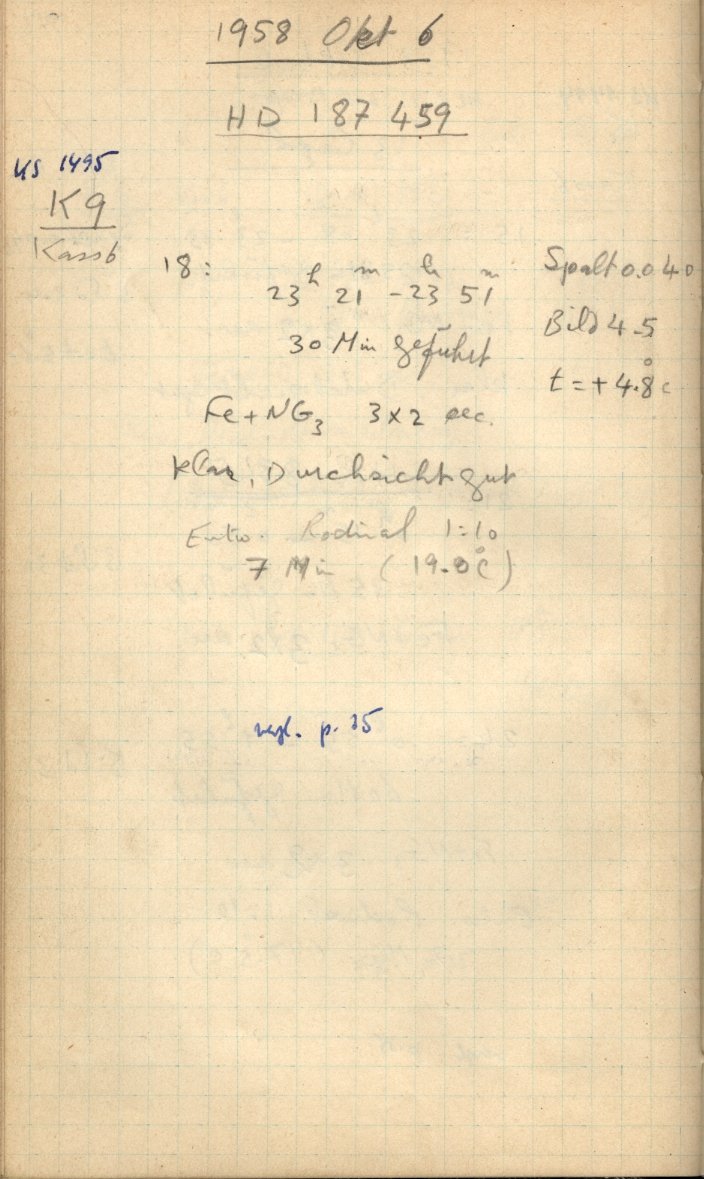 1958 Okt 6
HD 187 459
KS 1495
K9
Kass 6
18: 23h 21m - 23h 51m
30 Min geführt
Spalt 0.040
Bild 4.5
t = + 4.8°C
Fe + NG3 3x2 sec.
Klar, Durchsicht gut
Entw. Rodinal 1:10
7 Min (19.0°C)
vergl. p. 35